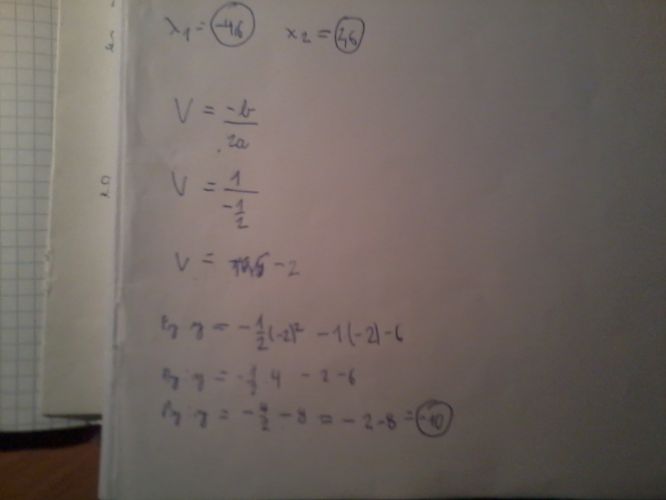 x₁ = -4,6 x₂ = 2,6
V = -b/2a
V = 1/(-1/2)
V = -2
y = -1/2(-2)² - 1(-2) - 6
y = -1/2 · 4 - 2 - 6
y = -4/2 - 8 = -2 - 8 = -10